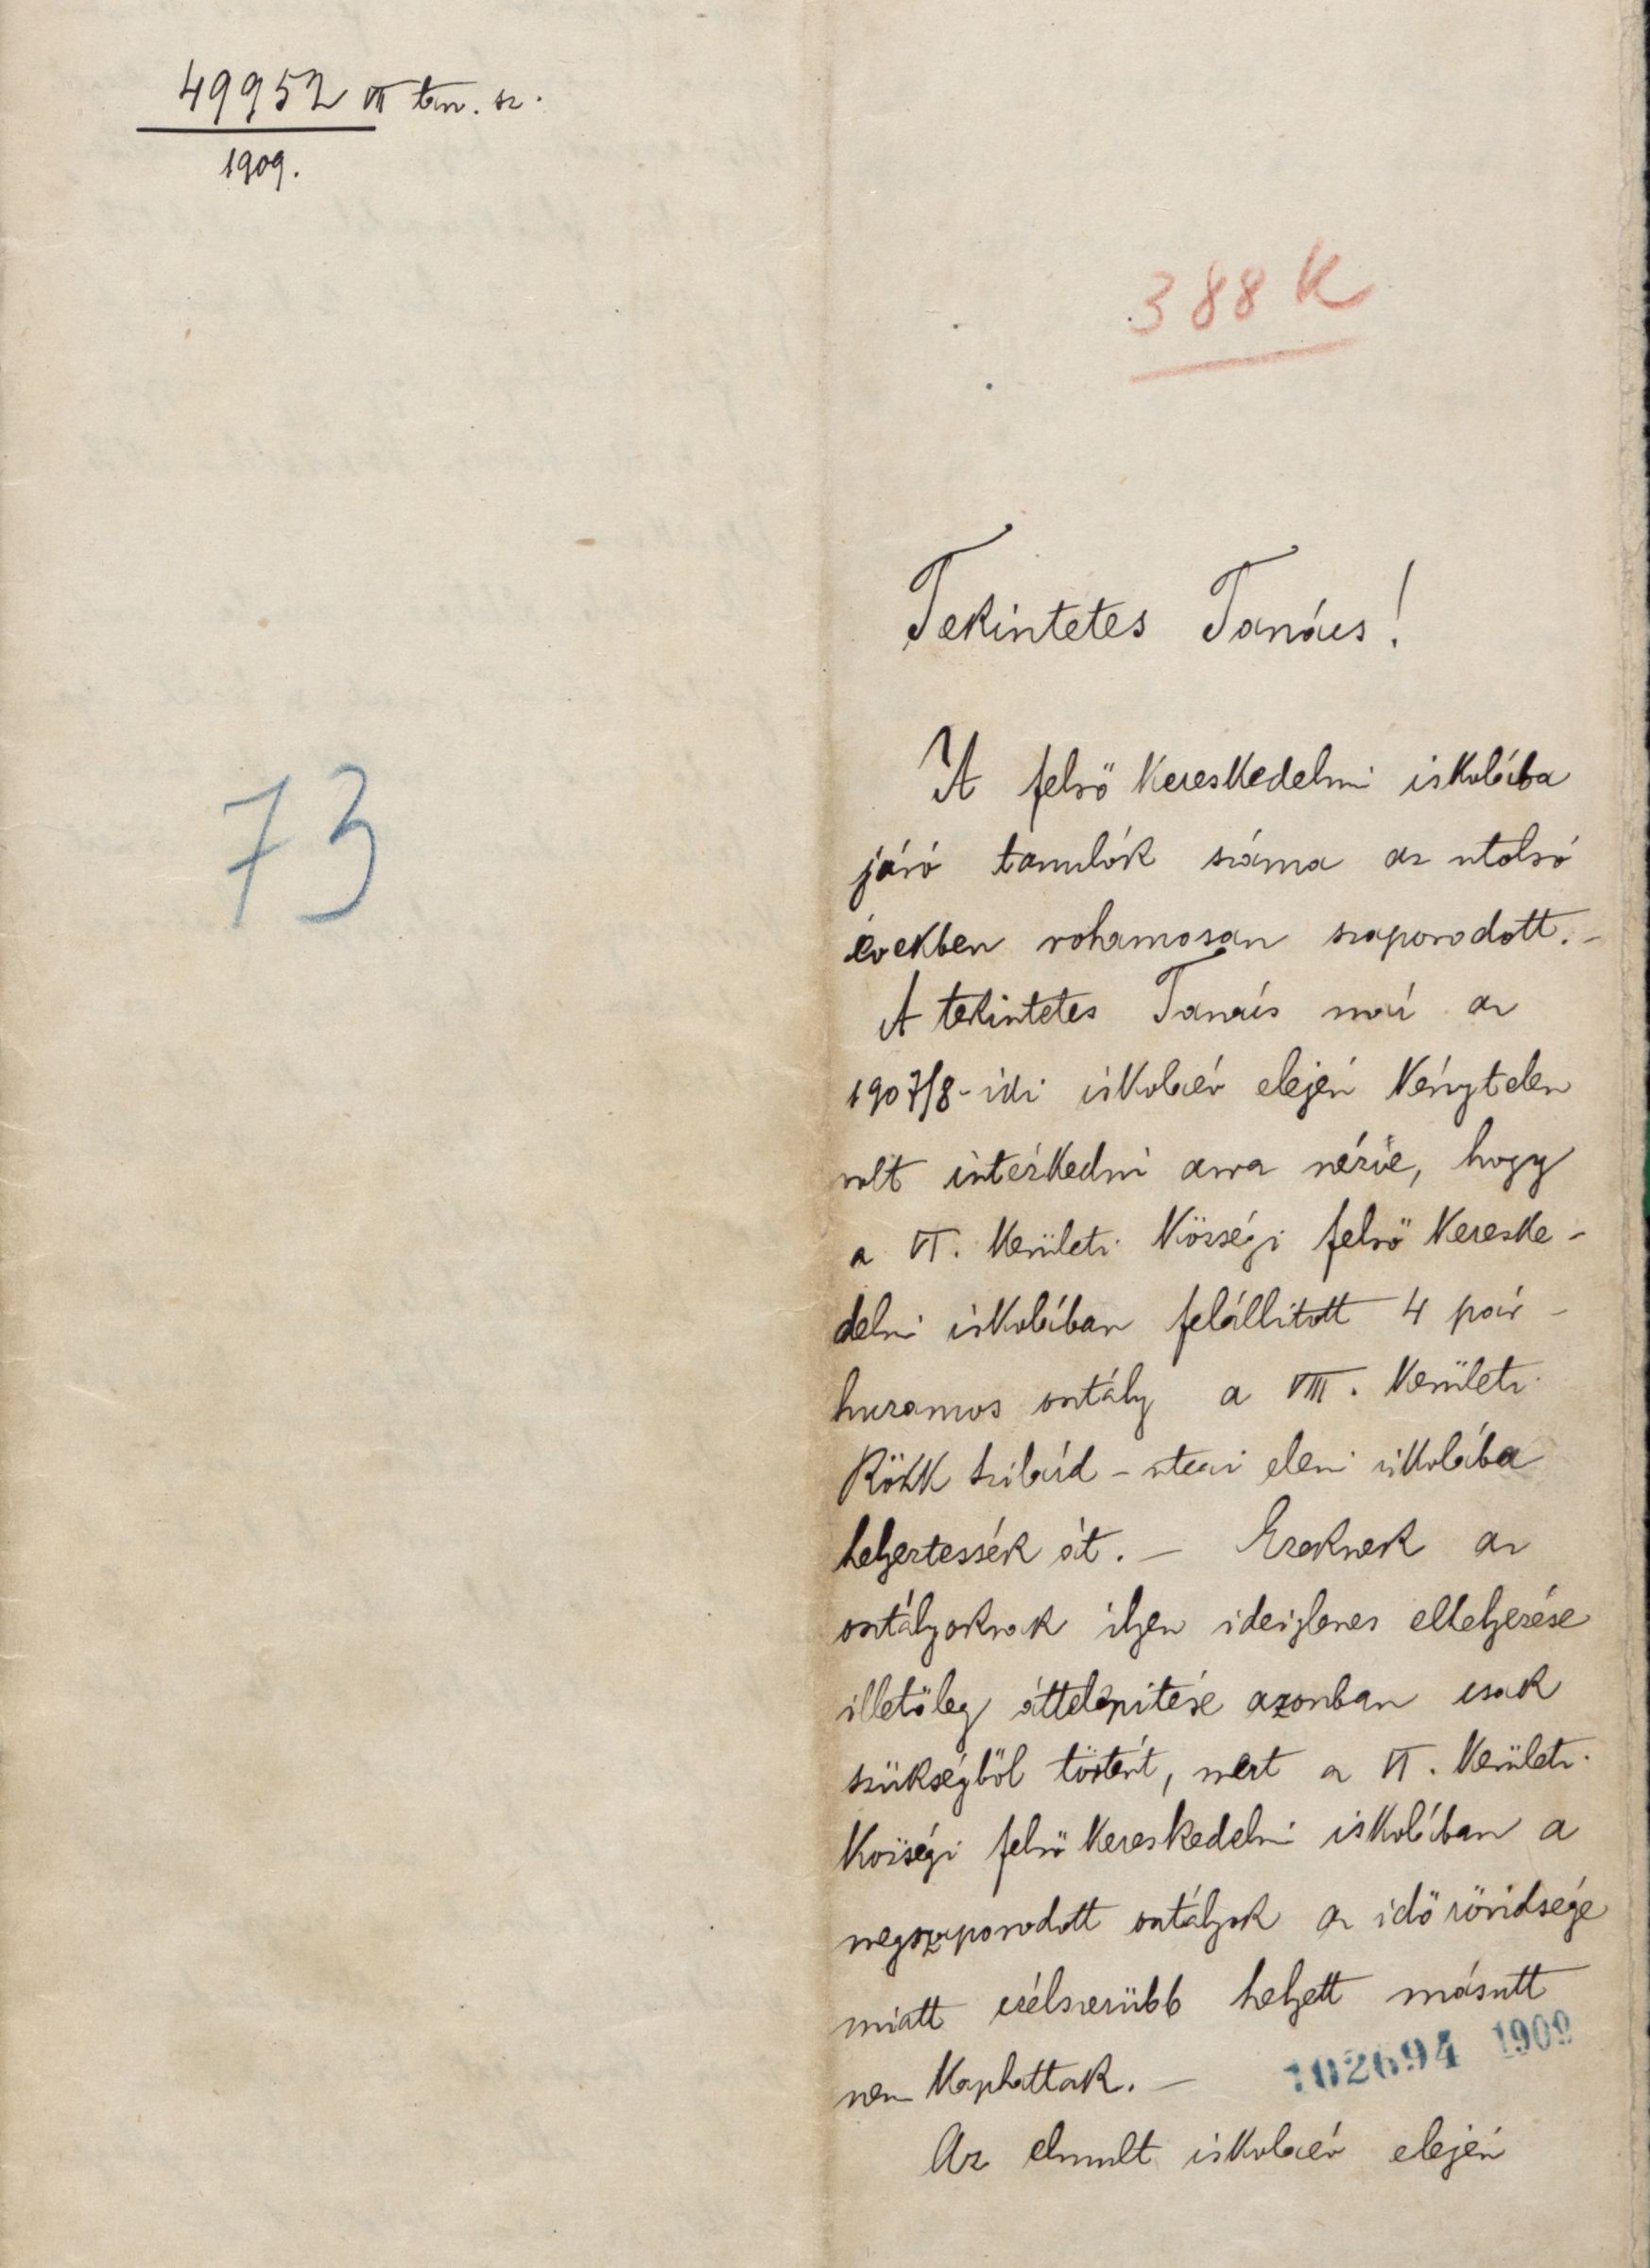 49952 VII tan. sz.
1909.
388 K
73
Tekintetes Tanács!
A felső kereskedelmi iskolába
járó tanulók száma az utolsó
években rohamosan szaporodott.-
A tekintetes Tanács már az
1907/8-iki iskolaév elején kénytelen
volt intézkedni arra nézve, hogy
a VI. kerületi községi felső kereske-
delmi iskolában felállitott 4 pár-
huzamos osztály a VIII. kerületi
Rökk Szilárd-utcai elemi iskolába
helyeztessék át. - Ezeknek az
osztályoknak ilyen ideiglenes elhelyezése
illetőleg áttelepitése azonban csak
szükségből történt, mert a VI. kerületi
községi felső kereskedelmi iskolában a
megszaporodott osztályok az idő rövidsége
miatt célszerübb helyett másutt
nem kaphattak. -
102694 1909
Az elmult iskolaév elején